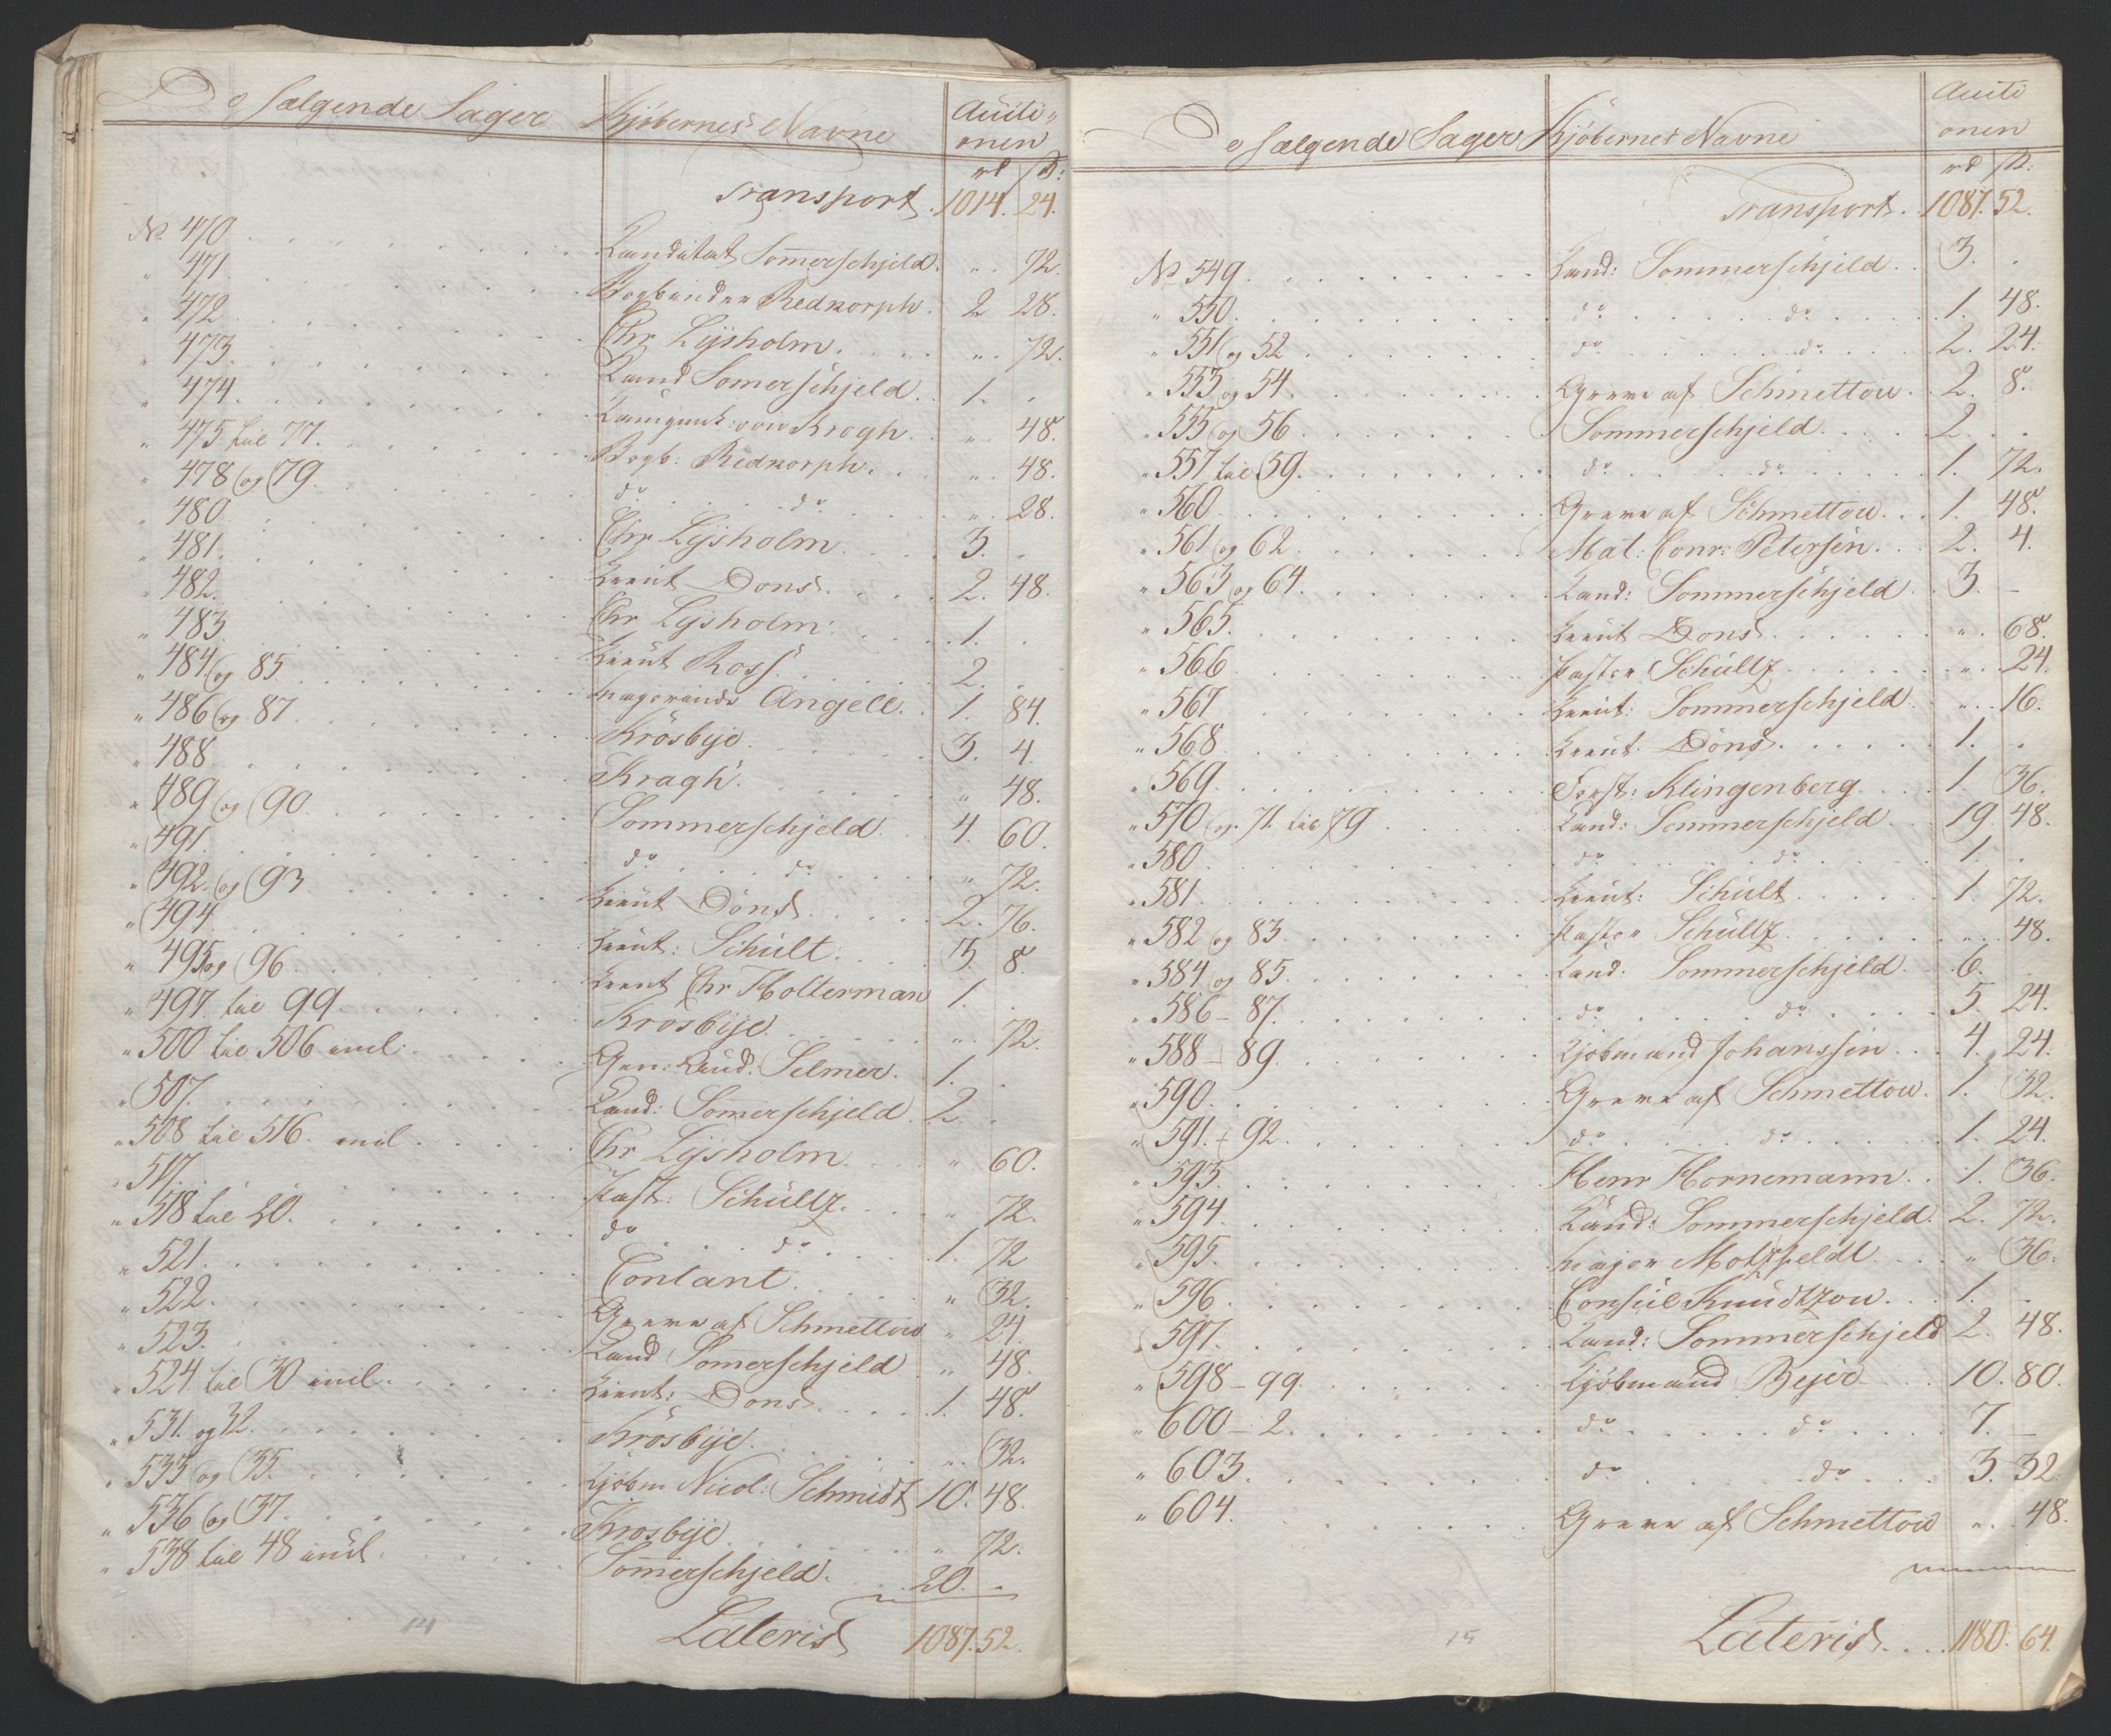 De sælgende Sager Kjöbernes Navne Auctionen
rd ß:
Transport. 1014. 24.
No 470 Kandidat Somerschjeld. " 72.
" 471 Bogbinder Rednorph. 2 28.
" 472 Chr Lysholm. " 72.
" 473. Kand Somerschjeld. 1. .
" 474. von Krogh. " 48.
" 475 til 77. Bogb: Rednorph. " 48.
" 478 og 79. do do " 28.
" 480 Chr Lysholm 3. .
" 481. Lieut Dons. 2. 48.
" 482. Chr Lysholm 1. .
" 483. Lieut Ross 2. .
" 484. og 85 Angell. 1. 84.
" 486 og 87 Krösbye 3. 4.
" 488 Kragh " 48.
" 489 og 90 Sommerschjeld. 4. 60.
" 491. do do " 72.
" 492. og 93 Lieut Dons 2. 76.
" 494 Lieut: Schult. 5. 8.
" 495 og 96. Lieut Chr Holterman 1. .
" 497 til 99. Krosbye. " 72.
" 500 til 506 incl. Gen: Kaud: Selmer. 1. .
" 507. Kand: Somerschjeld 2 .
" 508 til 516. incl Chr Lysholm. " 60.
" 517. Past: Schültz. " 72.
" 518 til 20. do do 1. 72
" 521. Contant. " 32.
" 522. Greve af Schmettow " 24.
" 523. Kand Somerschjeld " 48.
" 524 til 30 incl. Lieut: Dons 1. 48.
" 531. og 32. Krösbye. " 32.
" 533 og 35. Kjöbm Nicol: Schmidt 10. 48.
" 536 og 37. Krosbye. " 72.
" 538 til 48 incl. Somerschjeld. 20. .
Lateris 1087. 52.
14
De sælgende Sager Kjöbernes Navne Auctionen
rd ß:
Transport. 1087. 52.
No 549. Kand: Sommerschjeld. 3. .
" 550. do do 1. 48.
" 551 og 52 do do 2. 24.
" 553 og 54. Greve af Schmettow. 2. 8.
" 555 og 56 Sommerschjeld. 2. .
" 557 til 59. do do 1. 72.
" 560 Greve af Schmettow. 1. 48.
" 561 og 62. Mal: Conr: Petersen. 2. 4.
" 563 og 64. Kand: Sommerschjeld 3. -
" 565. Lieut Dons. " 68.
" 566 Pastor Schültz " 24.
" 567 Lieut: Sommerschjeld " 16.
" 568 Lieut Dons. 1. .
" 569. Forst: Klingenberg. 1. 36.
" 570 og 71 til 79 Kand: Sommerschjeld 19. 48.
" 580 do do 1. .
" 581. Lieut: Schült 1. 72.
" 582 og 83. Pastor Schültz " 48.
" 584 og 85. Kand: Sommerschjeld. 6. .
" 586 - 87. do do 5. 24.
" 588 - 89. Kjöbmand Johanssen 4. 24.
" 590. Greve af Schmettow. 1. 32.
" 591. - 92. do do 1. 24.
" 593. Henr Hornemann. 1. 36.
" 594. Kand: Sommerschjeld. 2. 72.
" 595. Major Motzfeldt " 36.
" 596. Consul Knudtzon. 1. .
" 597. Kand: Sommerschjeld 2. 48.
" 598 - 99. Kjöbmand Bejer 10. 80.
" 600 - 2. do do 7. -
" 603. do do 3. 32.
" 604. Greve af Schmettow " 48.
Lateris. 1180. 64.
15